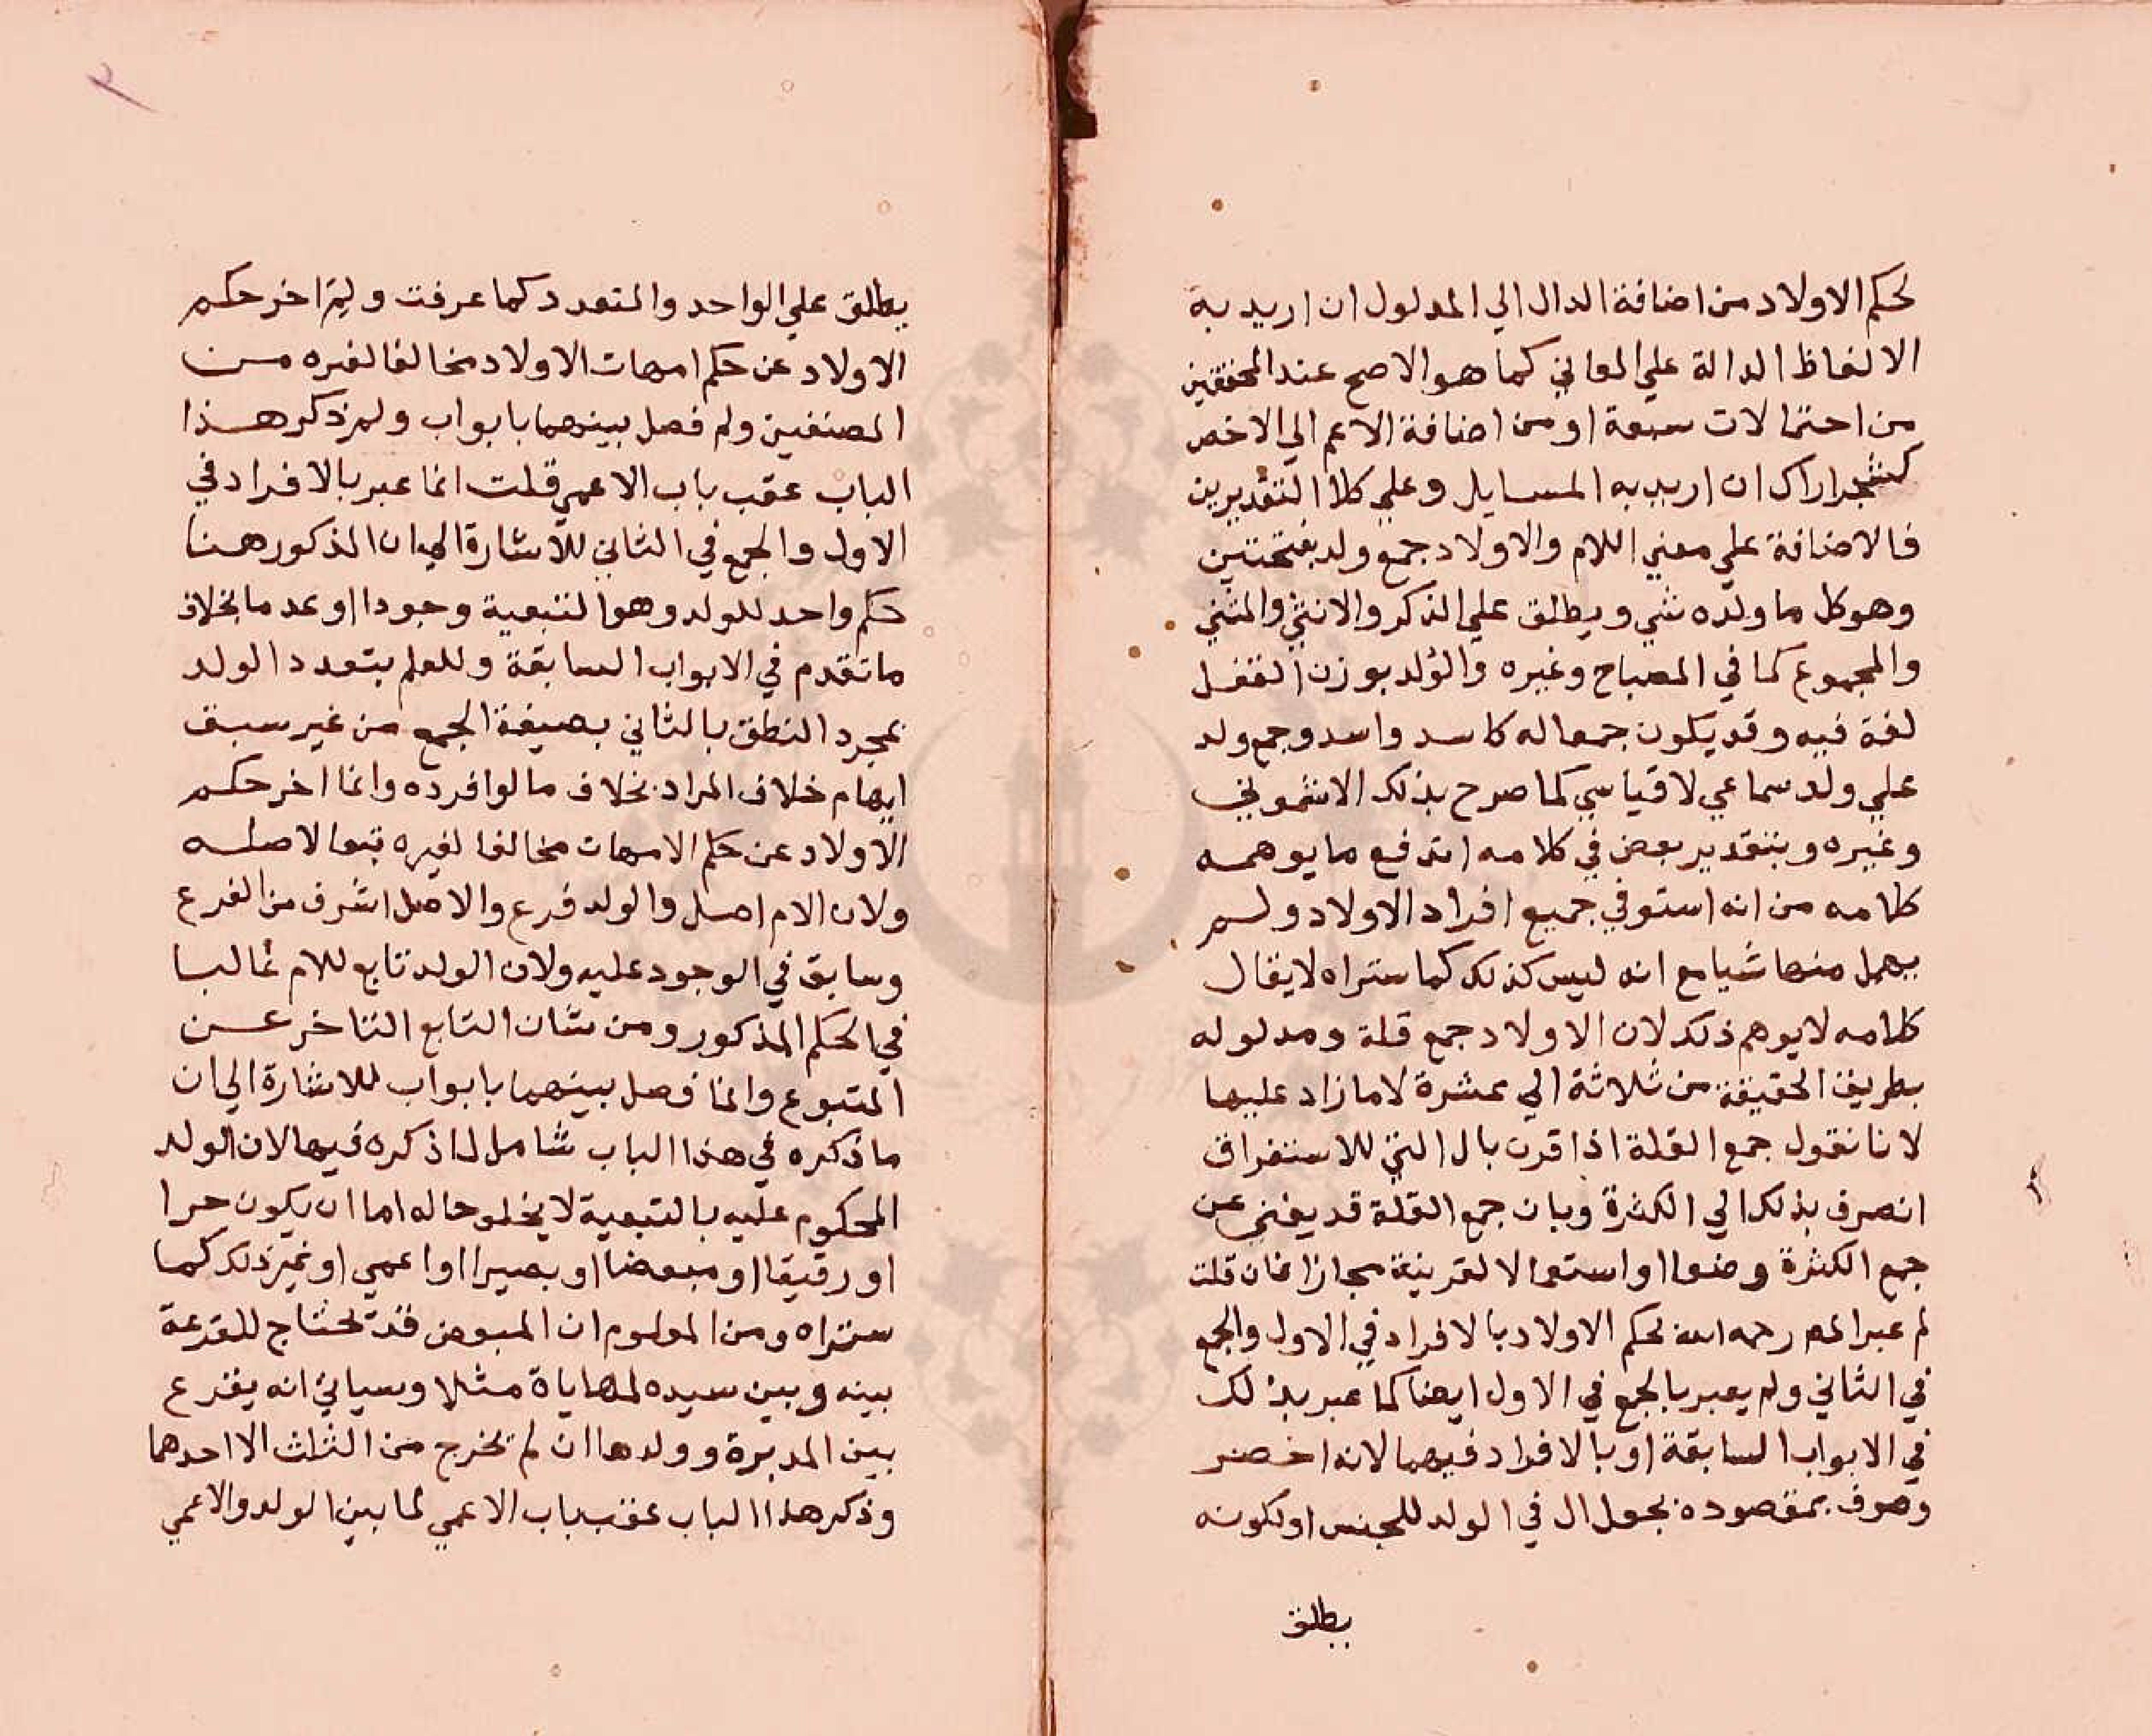 لحكم الاولاد من اضافة الدال الي المدلول ان اريد به
الالفاظ الدالة علي المعاني كما هو الاصح عند المحققين
من احتمالات سبعة او من اضافة الاعم الي الاخص
كشجر اراك ان اريد به المسايل وعلي كلا التقديرين
فالاضافة علي معني اللام والاولاد جمع ولد بفتحتين
وهو كل ما ولده شي ويطلق علي الذكر والانثي والمثني
والمجموع كما في المصباح وغيره والولد بوزن القفل
لغة فيه وقد يكون جمعا له كاسد واسد وجمع ولد
علي ولد سماعي لا قياسي كما صرح بذلك الاشموني
وغيره وبتقدير بعض في كلامه اندفع ما يوهمه
كلامه من انه استوفي جميع افراد الاولاد ولم
يهمل منها شيا مع انه ليس كذلك كما ستراه لا يقال
كلامه لا يوهم ذلك لان الاولاد جمع قلة ومدلوله
بطريق الحقيقة من ثلاثة الي عشرة لا ما زاد عليها
لانا نقول جمع القلة اذا قرن بال التي للاستغراق
انصرف بذلك الي الكثرة وبان جمع القلة قد يغني عن
جمع الكثرة وضعا او استعمالا لقرينة مجازا فان قلت
لم عبر المص رحمه الله لحكم الاولاد بالافراد في الاول والجمع
في الثاني ولم يعبر بالجمع في الاول ايضا كما عبر بذلك
في الابواب السابقة او بالافراد فيهما لانه اخصر
وصوف بمقصوده بجعل ال في الولد للجنس او لكونه
يطلق
يطلق علي الواحد والمتعدد كما عرفت ولم اخر حكم
الاولاد عن حكم امهات الاولاد مخالفا لغيره من
المصنفين ولم فصل بينهما بابواب ولم ذكر هذا
الباب عقب باب الاعمي قلت انما عبر بالافراد في
الاول والجمع في الثاني للاشارة الي ان المذكور هنا
حكم واحد للولد وهو التبعية وجودا او عدما بخلاف
ما تقدم في الابواب السابقة وللعلم بتعدد الولد
بمجرد النطق بالثاني بصيغة الجمع من غير سبق
ايهام خلاف المراد بخلاف ما لو افرده وانما اخر حكم
الاولاد عن حكم الامهات مخالفا لغيره تبعا لاصله
ولان الام اصل والولد فرع والاصل اشرف من الفرع
وسابق في الوجود عليه ولان الولد تابع للام غالبا
في الحكم المذكور ومن شان التابع التاخر عن
المتبوع وانما فصل بينهما بابواب للاشارة الي ان
ما ذكره في هذا الباب شامل لما ذكره فيها لان الولد
المحكوم عليه بالتبعية لا يخلو حاله اما ان يكون حرا
او رقيقا او مبعضا او بصيرا او اعمي او غير ذلك كما
ستراه ومن المعلوم ان المبعض قد تحتاج للقرعة
بينه وبين سيده لمهاياة مثلا وسياتي انه يقرع
بين المدبرة وولدها ان لم يخرج من الثلث الا احدهما
وذكر هذا الباب عقب باب الاعمي لما بين الولد والاعمي